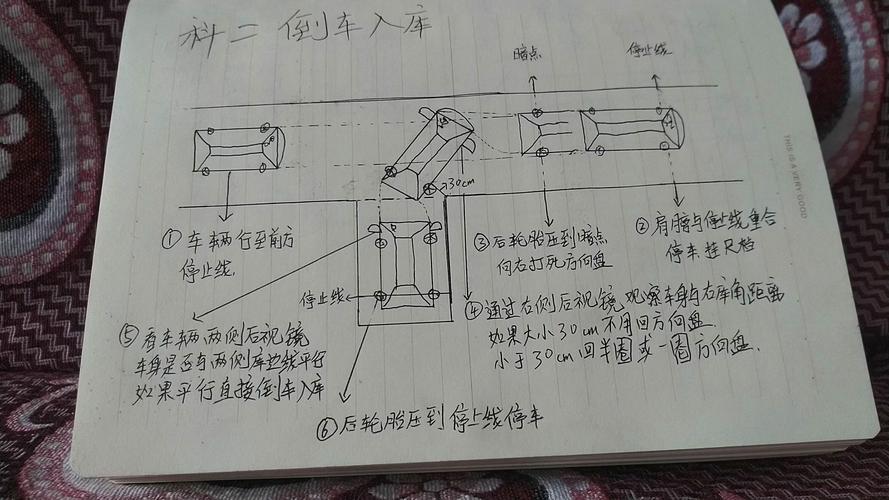 科二 倒车入库
暗点
停止线
30cm
① 车辆行至前方
停止线.
② 肩膀与停止线重合
停车.挂尺档
③ 后轮胎压到暗点
向右打死方向盘
停止线
④ 通过右侧后视镜,观察车身与右库角距离
如果大小30cm不用回方向盘.
小于30cm回半圈或一圈方向盘.
⑤ 看车辆两侧后视镜
车身是否与两侧库边线平行
如果平行直接倒车入库
⑥ 后轮胎压到停止线停车
THIS IS A VERY GOOD